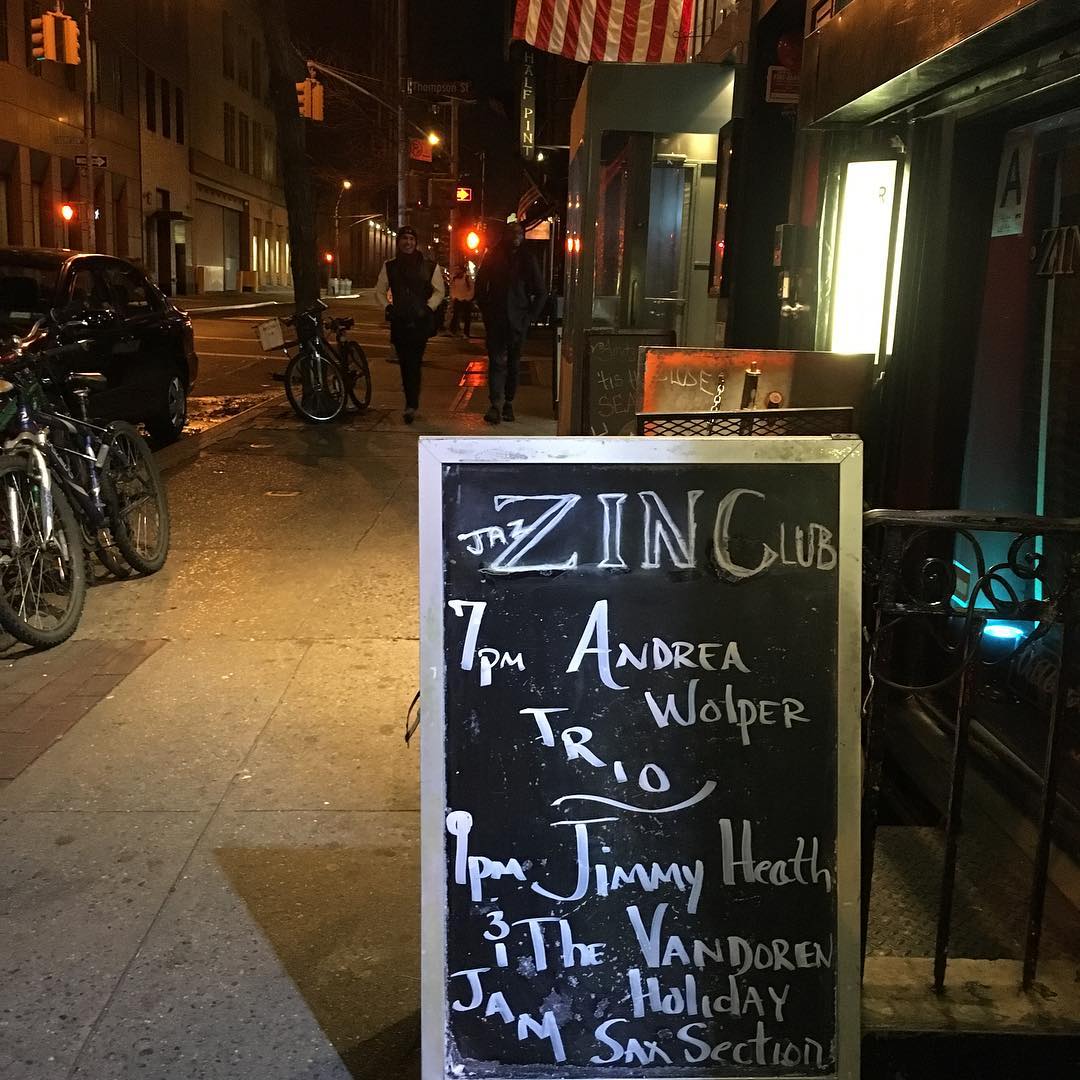 Thompson St
HALF PINT
A
ZIN
JAZ ZINC LUB
7pm ANDREA
WOLPER
TRIO
9pm Jimmy Heath
3
The VANDOREN
JAM Holiday
Sax Section